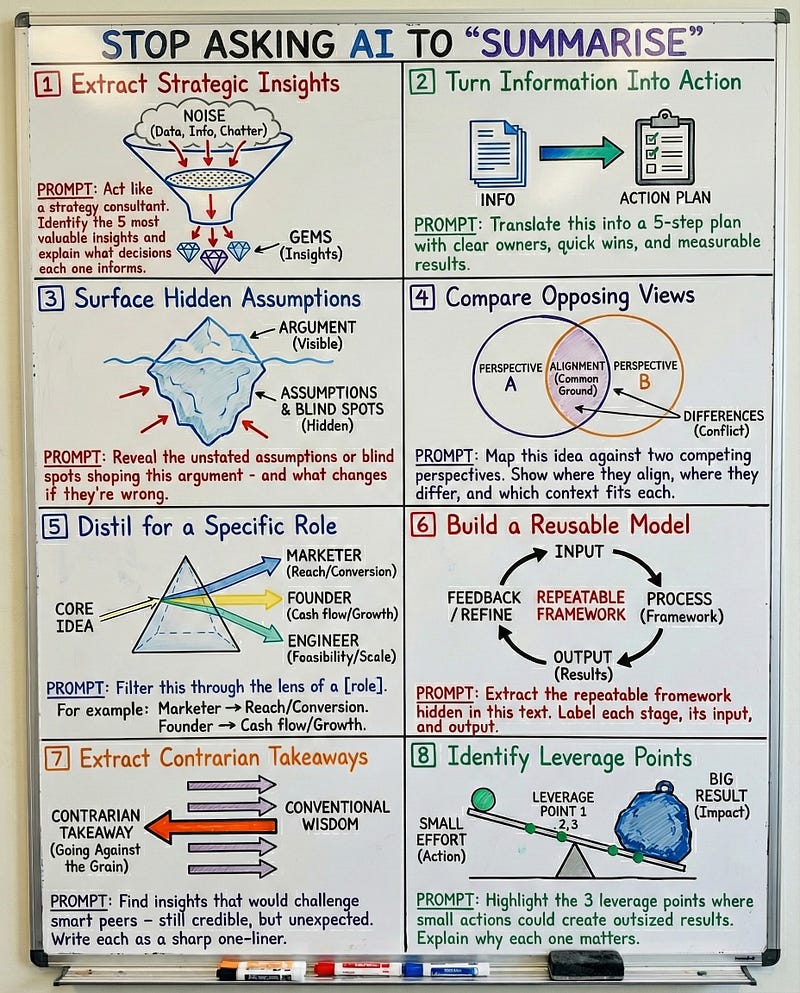 STOP ASKING AI TO “SUMMARISE”
1 Extract Strategic Insights
NOISE
(Data, Info, Chatter)
PROMPT: Act like
a strategy consultant.
Identify the 5 most
valuable insights and
explain what decisions
each one informs.
GEMS
(Insights)
2 Turn Information Into Action
INFO
ACTION PLAN
PROMPT: Translate this into a 5-step plan
with clear owners, quick wins, and measurable
results.
3 Surface Hidden Assumptions
ARGUMENT
(Visible)
ASSUMPTIONS
& BLIND SPOTS
(Hidden)
PROMPT: Reveal the unstated assumptions or blind
spots shoping this argument - and what changes
if they're wrong.
4 Compare Opposing Views
PERSPECTIVE
A
ALIGNMENT
(Common
Ground)
PERSPECTIVE
B
DIFFERENCES
(Conflict)
PROMPT: Map this idea against two competing
perspectives. Show where they align, where they
differ, and which context fits each.
5 Distil for a Specific Role
CORE
IDEA
MARKETER
(Reach/Conversion)
FOUNDER
(Cash flow/Growth)
ENGINEER
(Feasibility/Scale)
PROMPT: Filter this through the lens of a [role].
For example: Marketer → Reach/Conversion.
Founder → Cash flow/Growth.
6 Build a Reusable Model
INPUT
FEEDBACK
/ REFINE
REPEATABLE
FRAMEWORK
PROCESS
(Framework)
OUTPUT
(Results)
PROMPT: Extract the repeatable fromework
hidden in this text. Label each stage, its input,
and output.
7 Extract Contrarian Takeaways
CONTRARIAN
TAKEAWAY
(Going Against
the Grain)
CONVENTIONAL
WISDOM
PROMPT: Find insights that would challenge
smart peers – still credible, but unexpected.
Write each as a sharp one-liner.
8 Identify Leverage Points
SMALL
EFFORT
(Action)
LEVERAGE
POINT 1
,2,3
BIG
RESULT
(Impact)
PROMPT: Highlight the 3 leverage points where
small actions could create outsized results.
Explain why each one matters.